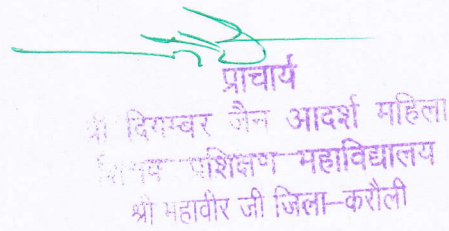 प्राचार्य
श्री दिगम्बर जैन आदर्श महिला
शिक्षक प्रशिक्षण महाविद्यालय
श्री महावीर जी जिला-करौली